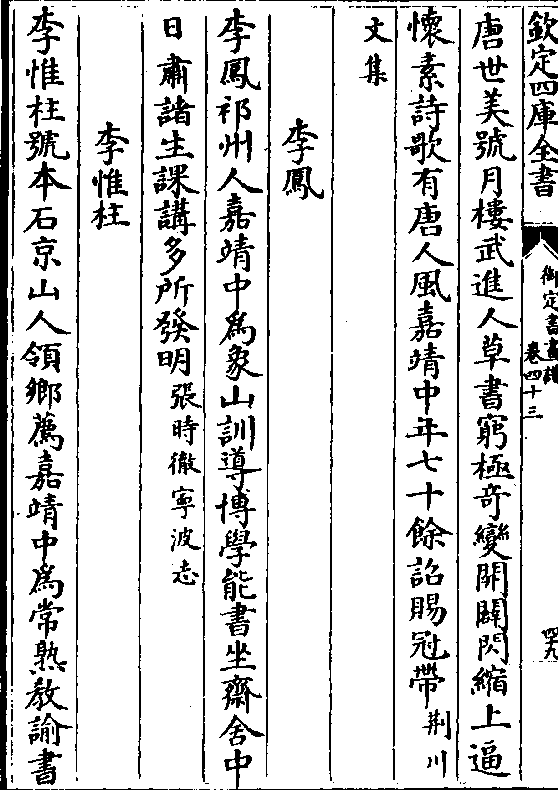 欽定四庫全書
御定書畫譜
卷四十三
四十九
唐世美號月樓武進人草書窮極奇變開闔閃縮上逼
懷素詩歌有唐人風嘉靖中年七十餘詔賜冠帶荆川
文集
李鳳
李鳳祁州人嘉靖中為象山訓導博學能書坐齋舍中
日肅諸生課講多所發明張時徹寧波志
李惟柱
李惟柱號本石京山人領鄉薦嘉靖中為常熟教諭書